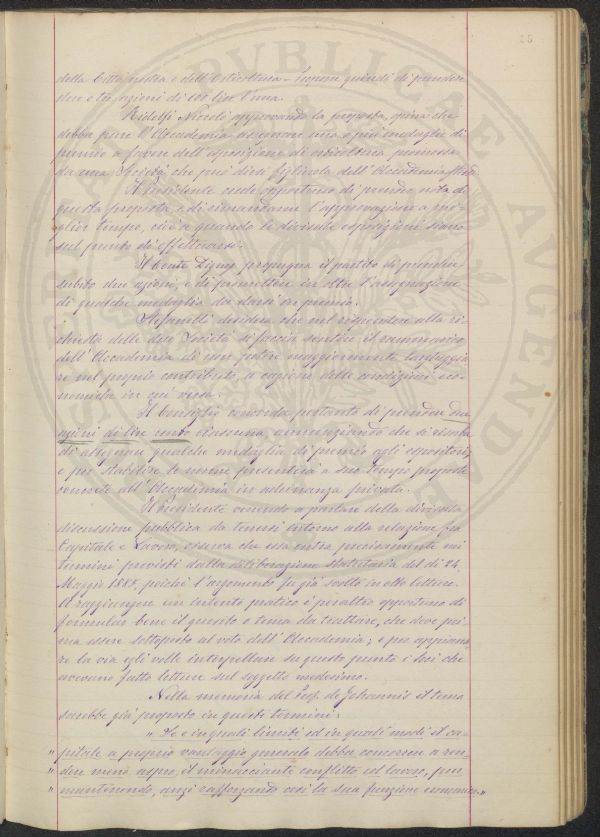 25
della Città nostra e dell'Orticoltura - Propone quindi di prendere
due o tre azioni di 100 lire l'una.
Ridolfi Niccolò approvando la proposta, opina che
debba pure l'Accademia assegnare una o più medaglie di
premio a favore dell'esposizione di orticoltura promossa
da una Società che può dirsi figliola dell'Accademia
Il Presidente crede opportuno di prender nota di
questa proposta e di rimandarne l'approvazione a mi-
glior tempo, cioè a quando le divisate esposizioni siano
sul punto di effettuarsi.
Il Conte Digny propugna il partito di prendere
subito due azioni, e di promettere in oltre l'assegnazione
di qualche medaglia da darsi in premio.
Stefanelli desidera che nel rispondere alla ri-
chiesta delle due Società si faccia sentire il rammarico
dell'Accademia di non poter maggiormente largheggia-
re nel proprio contributo, a cagione delle condizioni eco-
nomiche in cui versa.
Il Consiglio concorda pertanto di prendere due
azioni di lire cento ciascuna, annunziando che si riserba
di assegnare qualche medaglia di premio agli espositori,
e per stabilire le norme presenterà a suo tempo proposte
concrete all'Accademia in adunanza privata.
Il Presidente venendo a parlare della divisata
discussione pubblica da tenersi intorno alla relazione fra
Capitale e Lavoro, osserva che essa entra precisamente nei
termini previsti dalla deliberazione statutaria del dì 24
Maggio 1885, poichè l'argomento fu già svolto in altre letture.
A raggiungere un intento pratico è peraltro opportuno di
formular bene il quesito o tema da trattare, che deve pri-
ma essere sottoposto al voto dell'Accademia; e per appiana-
re la via egli volle interpellare su questo punto i Soci che
avevano fatto letture sul soggetto medesimo.
Nella memoria del Prof. de Johannis il tema
sarebbe già proposto in questi termini:
„ Se e in quali limiti ed in quali modi il ca-
„ pitale a proprio vantaggio generale debba concorrere a ren-
„ dere meno aspro, il minacciante conflitto col lavoro, pur
„ mantenendo, anzi rafforzando così la sua funzione economica „